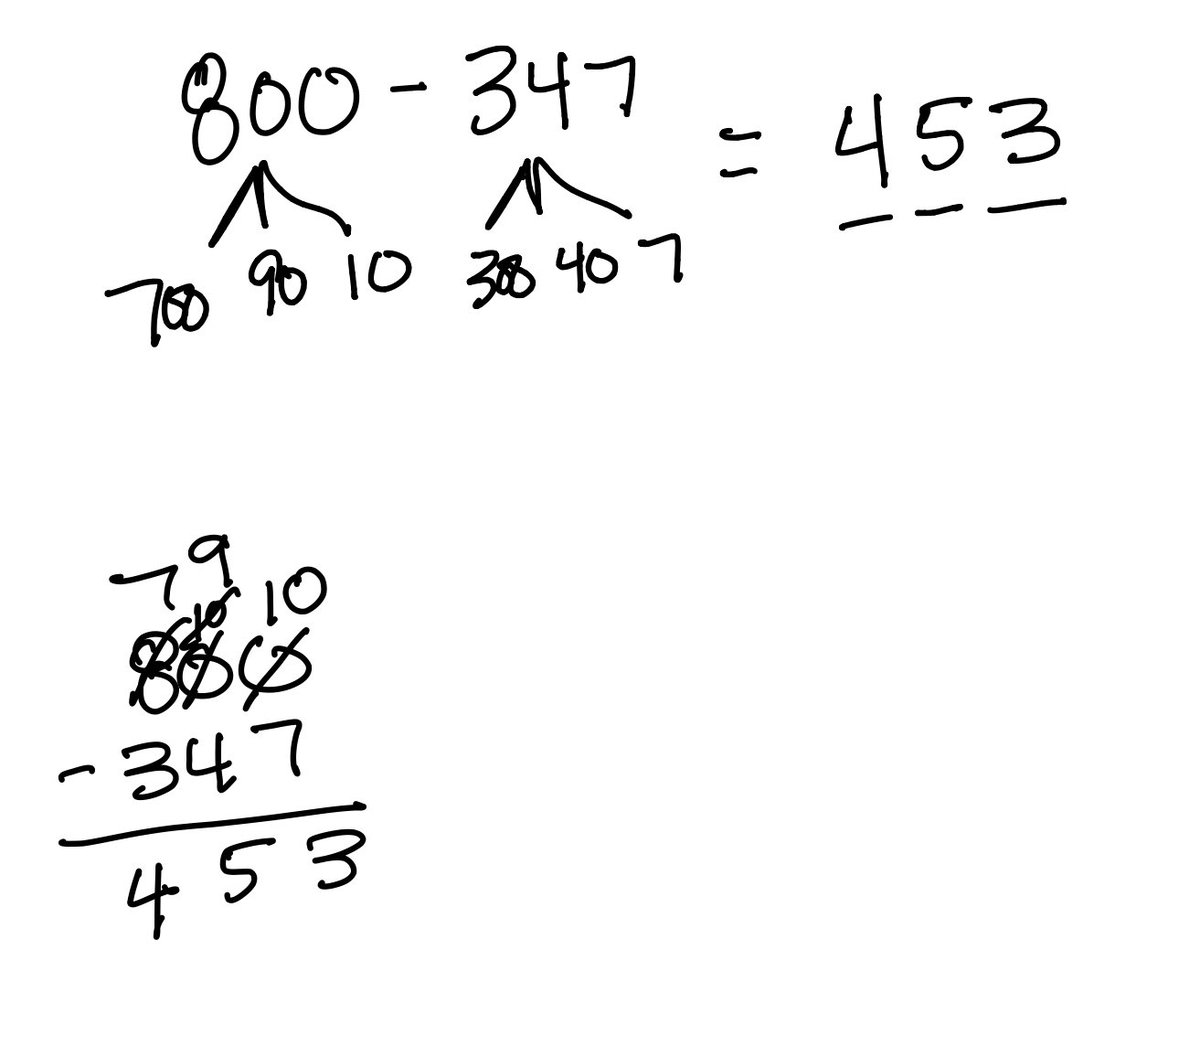 800 - 347 = 453
700 90 10 300 40 7
7 9 10
10
800
- 347
453